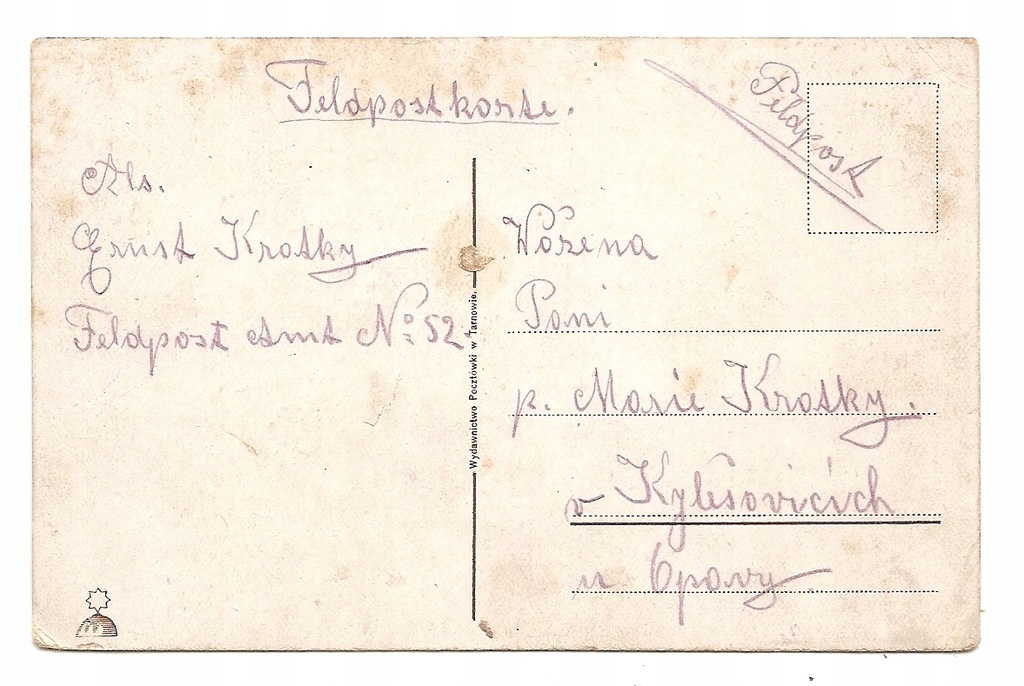 Feldpostkorte.
Feldpost
Als.
Ernst Krotky
Feldpost Amt No 52.
Wydawnictwo Pocztówki w Tarnowie.
Vožena
Pani
p. Marie Krotky.
v Kylešovicích
u Opavy